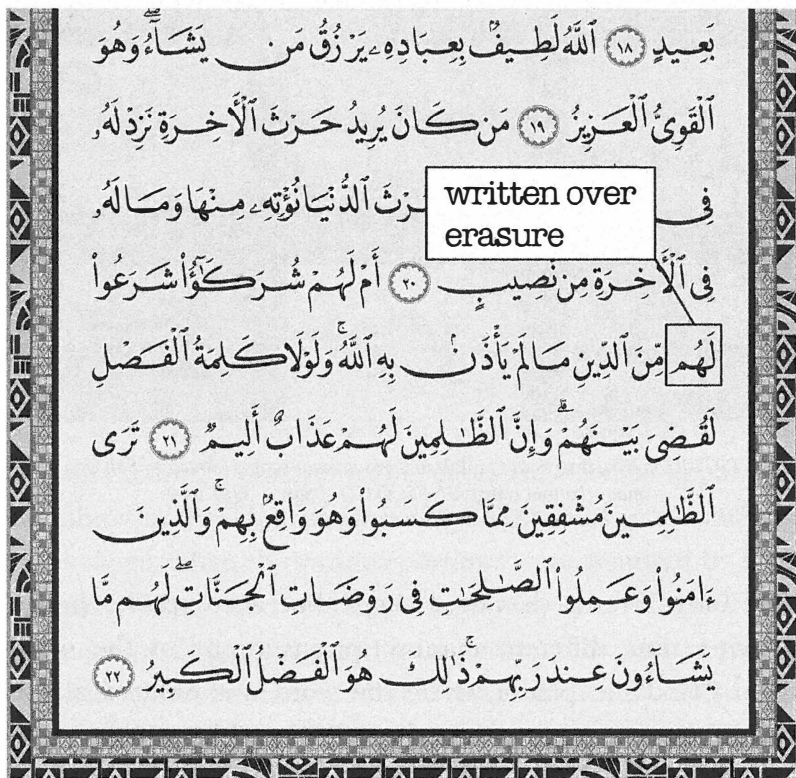 بَعِيدٍ ١٨ ٱللَّهُ لَطِيفٌۢ بِعِبَادِهِۦ يَرْزُقُ مَن يَشَآءُۖ وَهُوَ
ٱلْقَوِىُّ ٱلْعَزِيزُ ١٩ مَن كَانَ يُرِيدُ حَرْثَ ٱلْأَخِرَةِ نَزِدْ لَهُۥ
فِى رْثَ ٱلدُّنْيَا نُؤْتِهِۦ مِنْهَا وَمَالَهُۥ
written over
erasure
فِى ٱلْأَخِرَةِ مِن نَّصِيبٍ ٢٠ أَمْ لَهُمْ شُرَكَٰٓؤُا۟ شَرَعُوا۟
لَهُم مِّنَ ٱلدِّينِ مَالَمْ يَأْذَنۢ بِهِ ٱللَّهُۚ وَلَوْلَا كَلِمَةُ ٱلْفَصْلِ
لَقُضِىَ بَيْنَهُمْۗ وَإِنَّ ٱلظَّٰلِمِينَ لَهُمْ عَذَابٌ أَلِيمٌ ٢١ تَرَى
ٱلظَّٰلِمِينَ مُشْفِقِينَ مِمَّا كَسَبُوا۟ وَهُوَ وَاقِعٌۢ بِهِمْۚ وَٱلَّذِينَ
ءَامَنُوا۟ وَعَمِلُوا۟ ٱلصَّٰلِحَٰتِ فِى رَوْضَاتِ ٱلْجَنَّاتِۖ لَهُم مَّا
يَشَآءُونَ عِندَ رَبِّهِمْۚ ذَٰلِكَ هُوَ ٱلْفَضْلُ ٱلْكَبِيرُ ٢٢